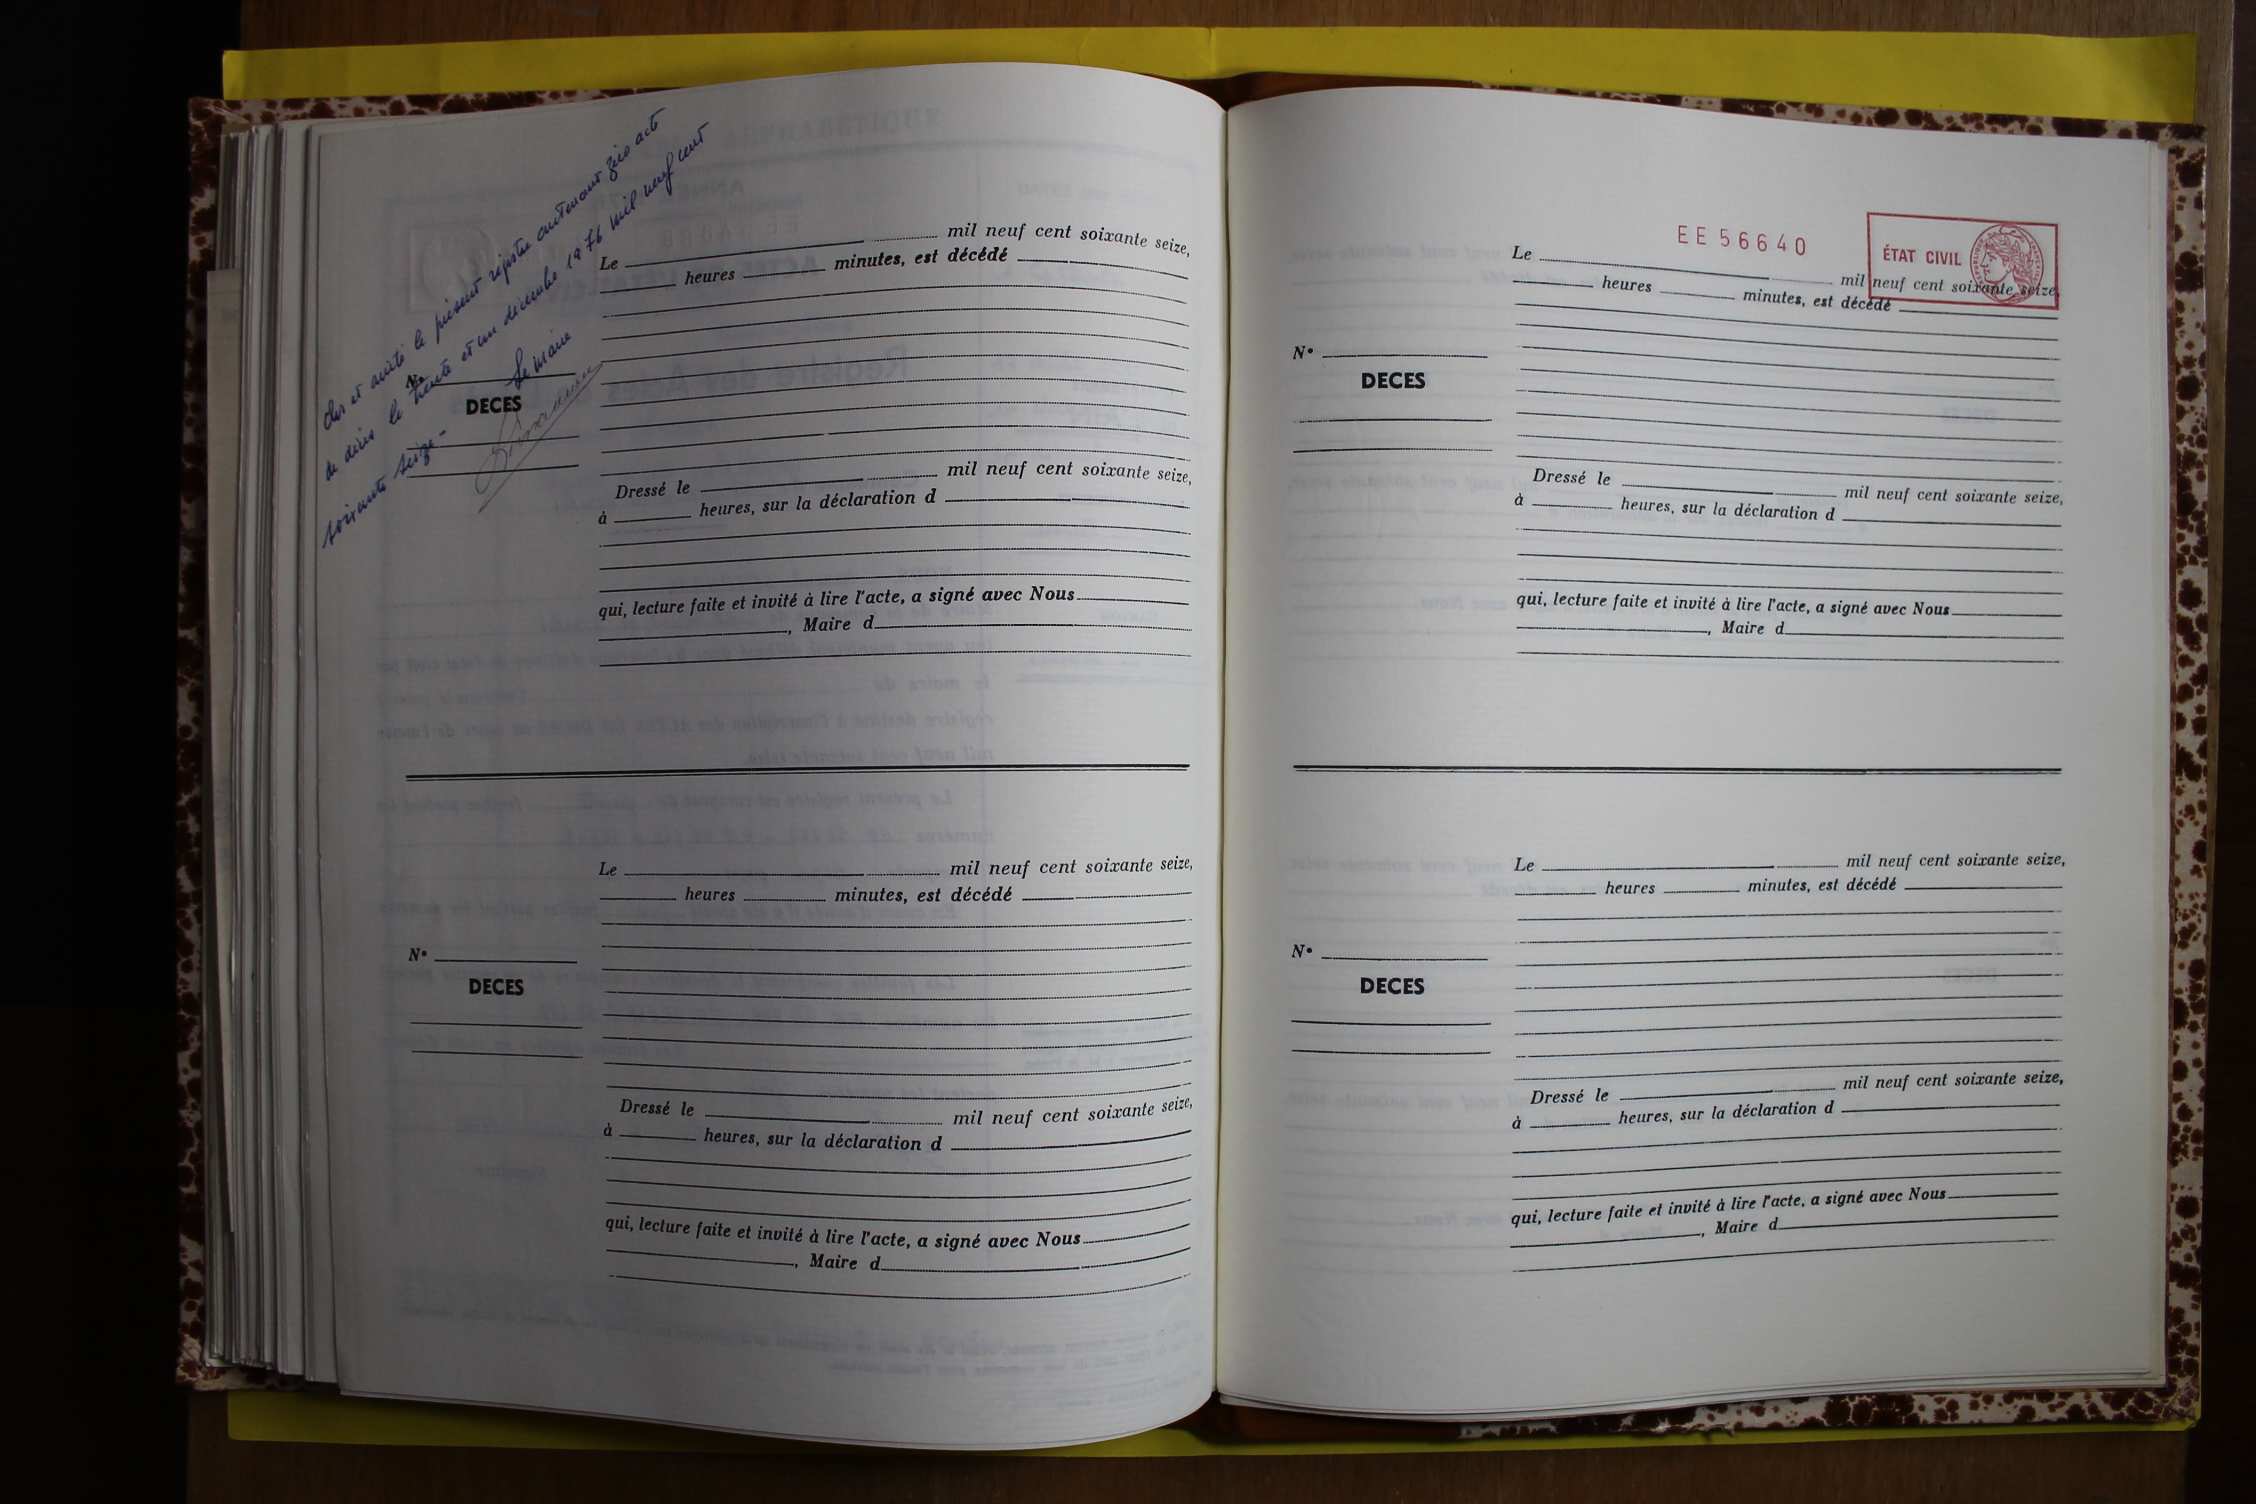 Clos et arrêté le présent registre contenant zéro acte
de décès le trente et un décembre 1976 mil neuf cent
soixante seize -
Le maire
Le mil neuf cent soixante seize,
heures minutes, est décédé
N°
DECES
Dressé le mil neuf cent soixante seize,
à heures, sur la déclaration d
qui, lecture faite et invité à lire l'acte, a signé avec Nous
, Maire d
Le mil neuf cent soixante seize,
heures minutes, est décédé
N°
DECES
Dressé le mil neuf cent soixante seize,
à heures, sur la déclaration d
qui, lecture faite et invité à lire l'acte, a signé avec Nous
, Maire d
EE 56640
ÉTAT CIVIL
Le mil neuf cent soixante seize,
heures minutes, est décédé
N°
DECES
Dressé le mil neuf cent soixante seize,
à heures, sur la déclaration d
qui, lecture faite et invité à lire l'acte, a signé avec Nous
, Maire d
Le mil neuf cent soixante seize,
heures minutes, est décédé
N°
DECES
Dressé le mil neuf cent soixante seize,
à heures, sur la déclaration d
qui, lecture faite et invité à lire l'acte, a signé avec Nous
, Maire d